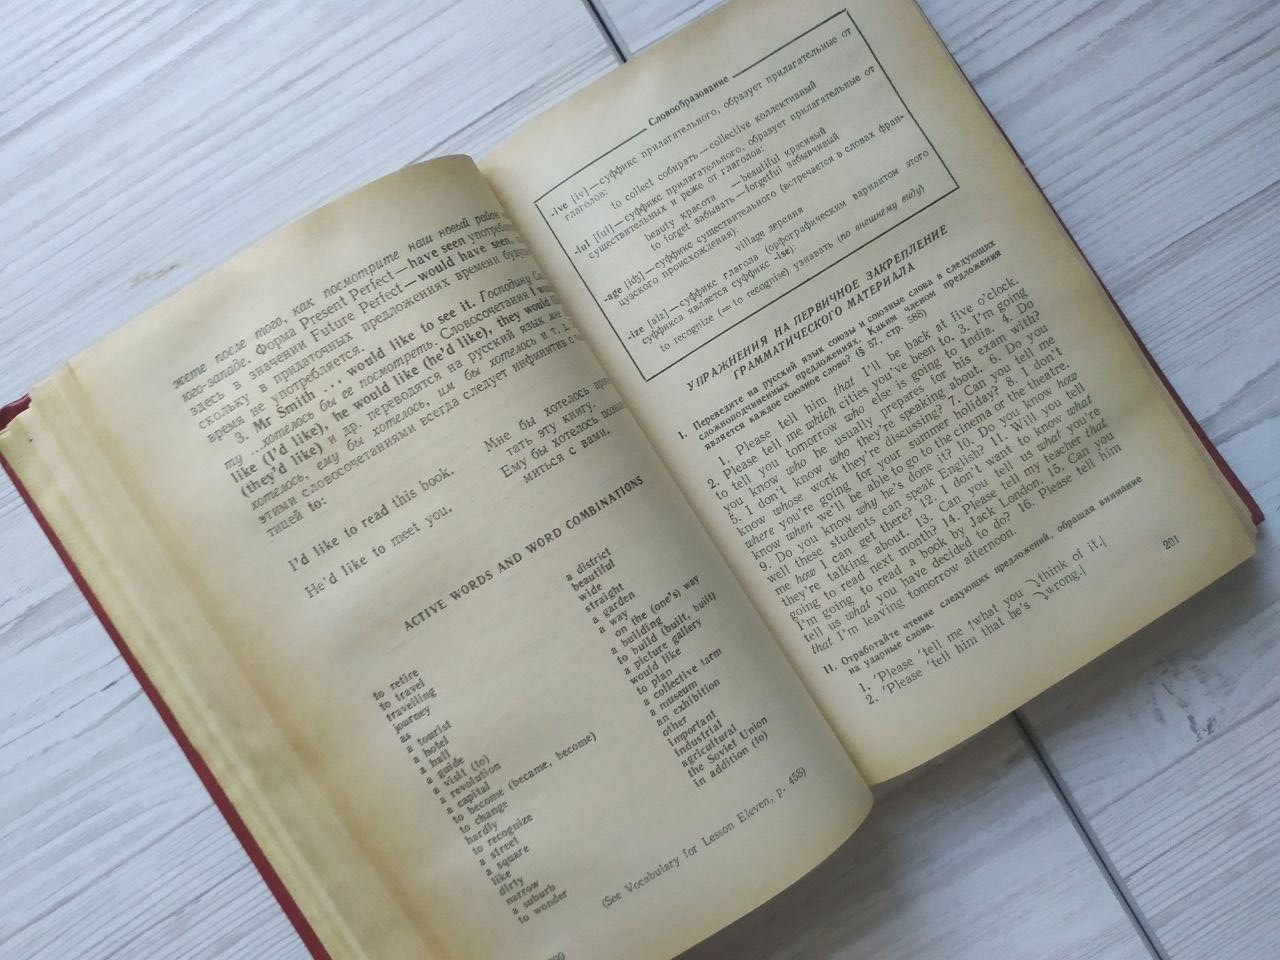 жете после того, как посмотрите наш новый район
юго-западе. Форма Present Perfect — have seen
здесь в значении Future Perfect — would have seen,
скольку в придаточных предложениях времени
время не употребляется.
3. Mr Smith ... would like to see it. Господину
ту ...хотелось бы ее посмотреть. Словосочетания I
like (I'd like), he would like (he'd like), they would
(they'd like) и др. переводятся на русский язык
хотелось, ему бы хотелось, им бы хотелось и т. д.
этими словосочетаниями всегда следует инфинитив с
тицей to:
I'd like to read this book. Мне бы хотелось
тать эту книгу.
He'd like to meet you. Ему бы хотелось
миться с вами.
ACTIVE WORDS AND WORD COMBINATIONS
to retire
to travel
travelling
journey
as
a tourist
a hotel
a hall
a guide
a visit (to)
a revolution
a capital
to become (became, become)
to change
hardly
to recognize
a street
a square
like
dirty
narrow
a suburb
to wonder
a district
beautiful
wide
straight
a garden
a way
on the (one's) way
a building
to build (built, built)
a picture gallery
would like
to plan
a collective farm
a museum
an exhibition
other
important
industrial
agricultural
the Soviet Union
in addition (to)
(See Vocabulary for Lesson Eleven, p. 458)
Словообразование
-ive [iv] — суффикс прилагательного, образует прилагательные от
глаголов:
to collect собирать — collective коллективный
-ful [ful] — суффикс прилагательного, образует прилагательные от
существительных и реже от глаголов:
beauty красота — beautiful красивый
to forget забывать — forgetful забывчивый
-age [idʒ] — суффикс существительного (встречается в словах фран-
цузского происхождения):
village деревня
-ize [aiz] — суффикс глагола (орфографическим вариантом этого
суффикса является суффикс -ise):
to recognize (= to recognise) узнавать (по внешнему виду)
УПРАЖНЕНИЯ НА ПЕРВИЧНОЕ ЗАКРЕПЛЕНИЕ
ГРАММАТИЧЕСКОГО МАТЕРИАЛА
I. Переведите на русский язык союзы и союзные слова в следующих
сложноподчиненных предложениях. Каким членом предложения
является каждое союзное слово? (§ 57, стр. 588)
1. Please tell him that I'll be back at five o'clock.
2. Please tell me which cities you've been to. 3. I'm going
to tell you tomorrow who else is going to India. 4. Do
you know who he usually prepares for his exam with?
5. I don't know who they're speaking about. 6. Do you
know whose work they're discussing? 7. Can you tell me
where you're going for your summer holiday? 8. I don't
know when we'll be able to go to the cinema or the theatre.
9. Do you know why he's done it? 10. Do you know how
well these students can speak English? 11. Will you tell
me how I can get there? 12. I don't want to know what
they're talking about. 13. Can you tell us what you're
going to read next month? 14. Please tell my teacher that
I'm going to read a book by Jack London. 15. Can you
tell us what you have decided to do? 16. Please tell him
that I'm leaving tomorrow afternoon.
II. Отработайте чтение следующих предложений, обращая внимание
на ударные слова.
1. 'Please 'tell me what you think of it.|
2. 'Please 'tell him that he's wrong.|
201